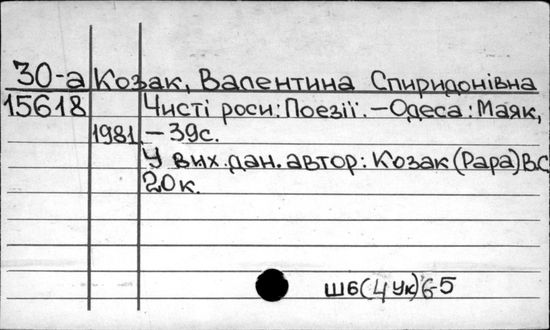 30-а Козак, Валентина Спиридонівна
15618 Чисті роси: Поезії. – Одеса: Маяк,
1981. – 39с.
У вих. дан. автор: Козак (Рара) В.С.
20к.
Ш6(4Ук)6-5